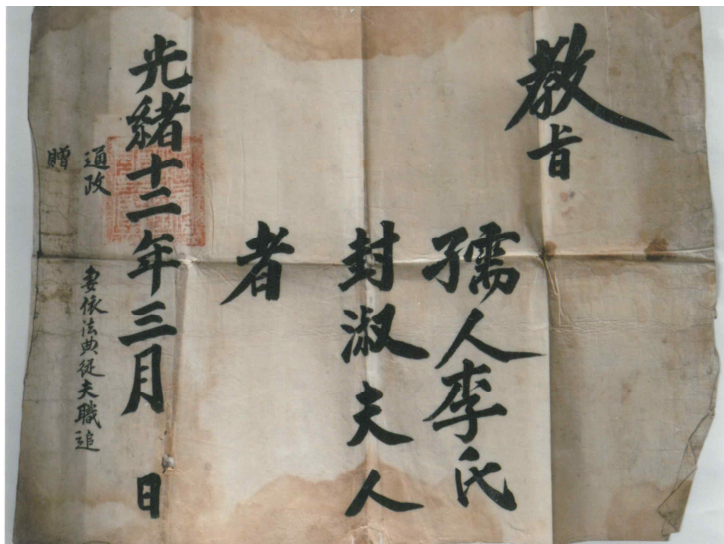 教旨
孺人李氏
封淑夫人
者
光緒十二年三月 日
通政 妻依法典從夫職追
贈